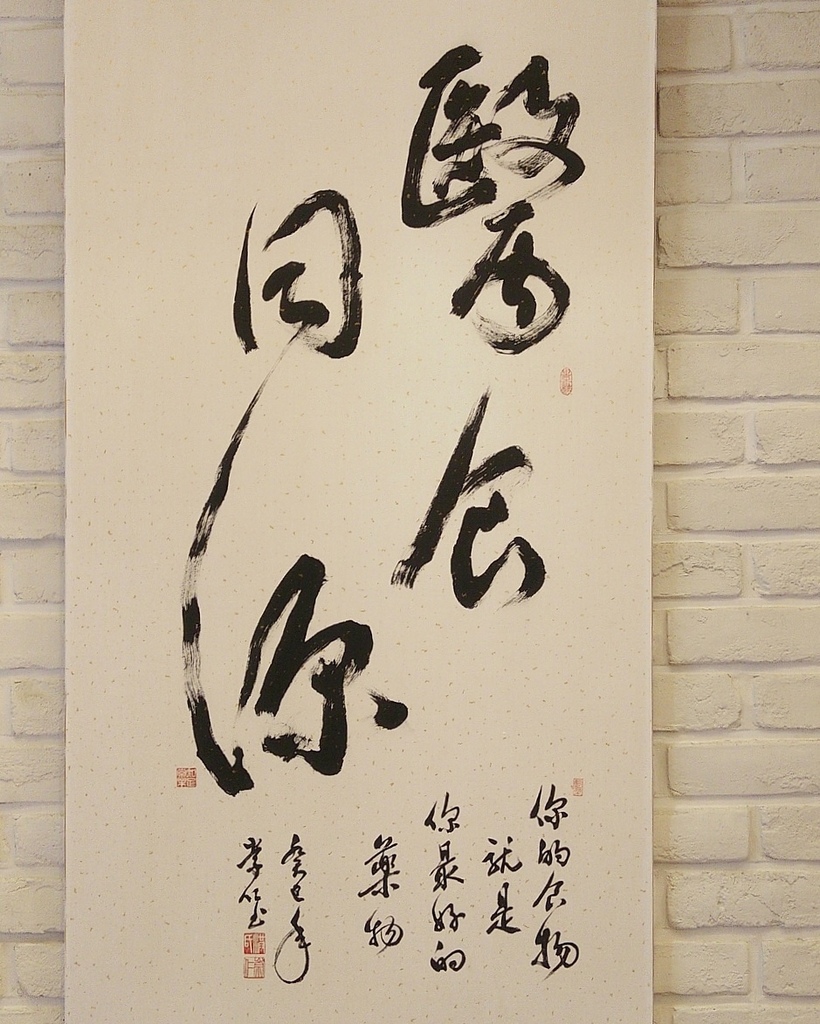 醫食
同源
你的食物
就是
你最好的
藥物
癸巳年